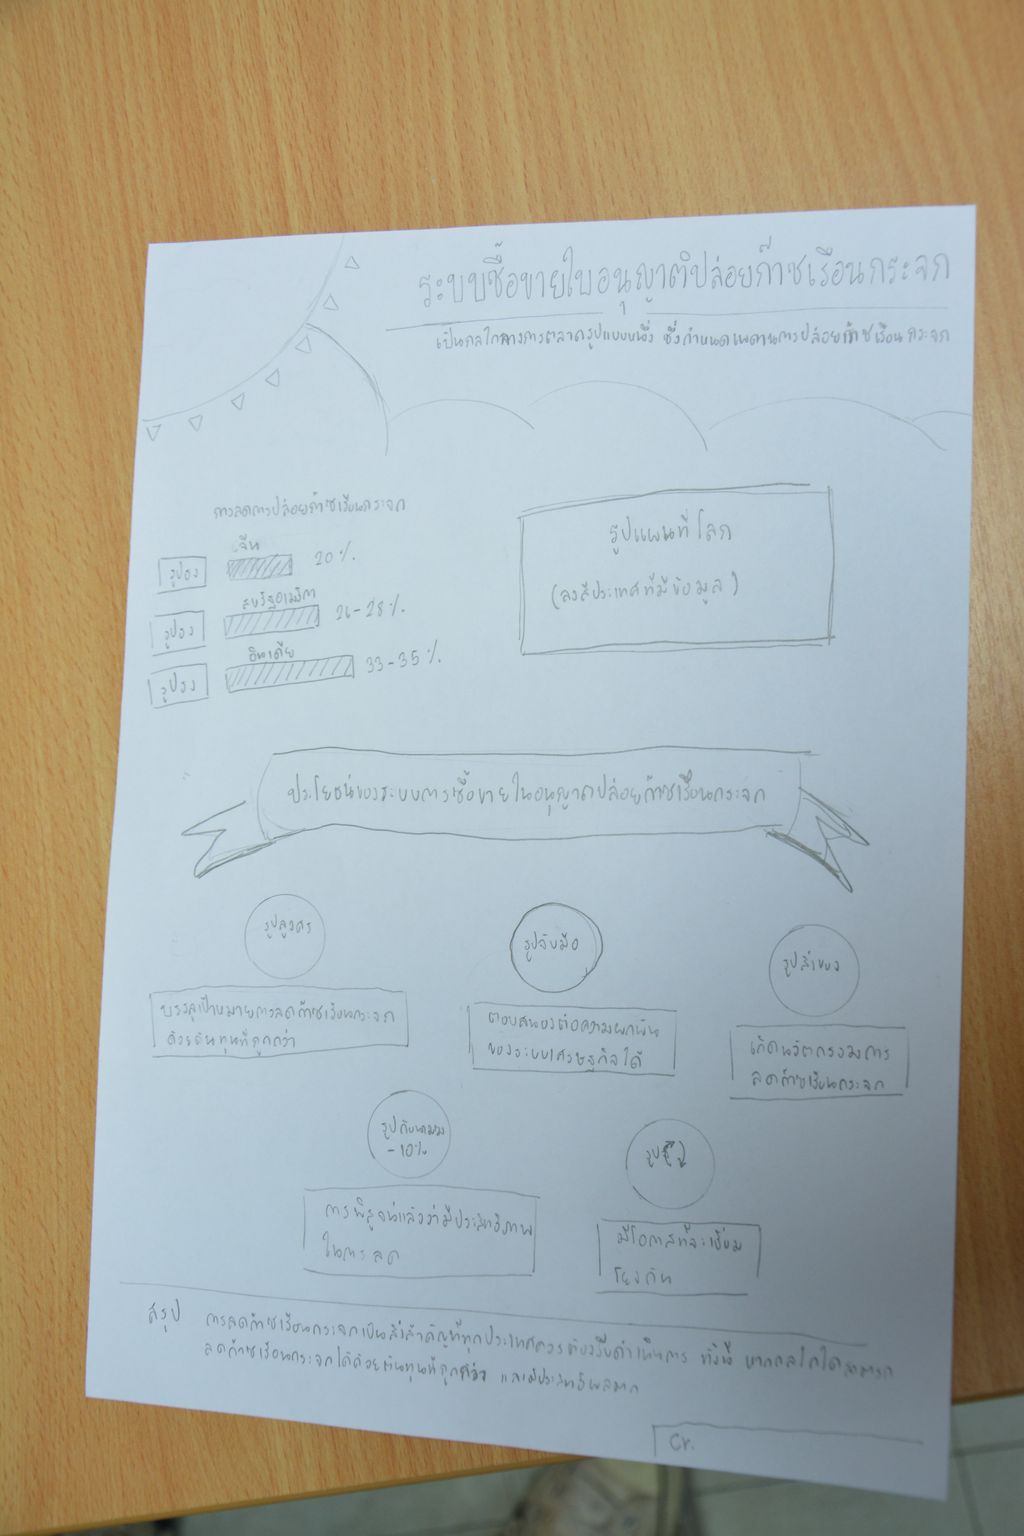 ระบบซื้อขายใบอนุญาติปล่อยก๊าซเรือนกระจก
เป็นกลไกทางการตลาดรูปแบบหนึ่ง ซึ่งกำหนดเพดานการปล่อยก๊าซเรือนกระจก
การลดการปล่อยก๊าซเรือนกระจก
จีน
รูปธง
20%
สหรัฐอเมริกา
รูปธง
26-28%
อินเดีย
รูปธง
33-35%
รูปแผนที่โลก
(ลงสีประเทศที่มีข้อมูล)
ประโยชน์ของระบบการซื้อขายใบอนุญาตปล่อยก๊าซเรือนกระจก
รูปลูกศร
บรรลุเป้าหมายการลดก๊าซเรือนกระจก
ด้วยต้นทุนที่ถูกกว่า
รูปจับมือ
ตอบสนองต่อความผกผัน
ของระบบเศรษฐกิจได้
เกิดนวัตกรรมการ
ลดก๊าซเรือนกระจก
-10%
การพิสูจน์แล้วว่ามีประสิทธิภาพ
ในการลด
มีโอกาสที่จะเชื่อม
โยงกัน
สรุป การลดก๊าซเรือนกระจกเป็นสิ่งสำคัญที่ทุกประเทศควรต้องรีบดำเนินการ ทั้งนี้ หากกลไกใดสามารถ
ลดก๊าซเรือนกระจกได้ด้วยต้นทุนที่ถูกกว่า และมีประสิทธิผลมาก
Cr.